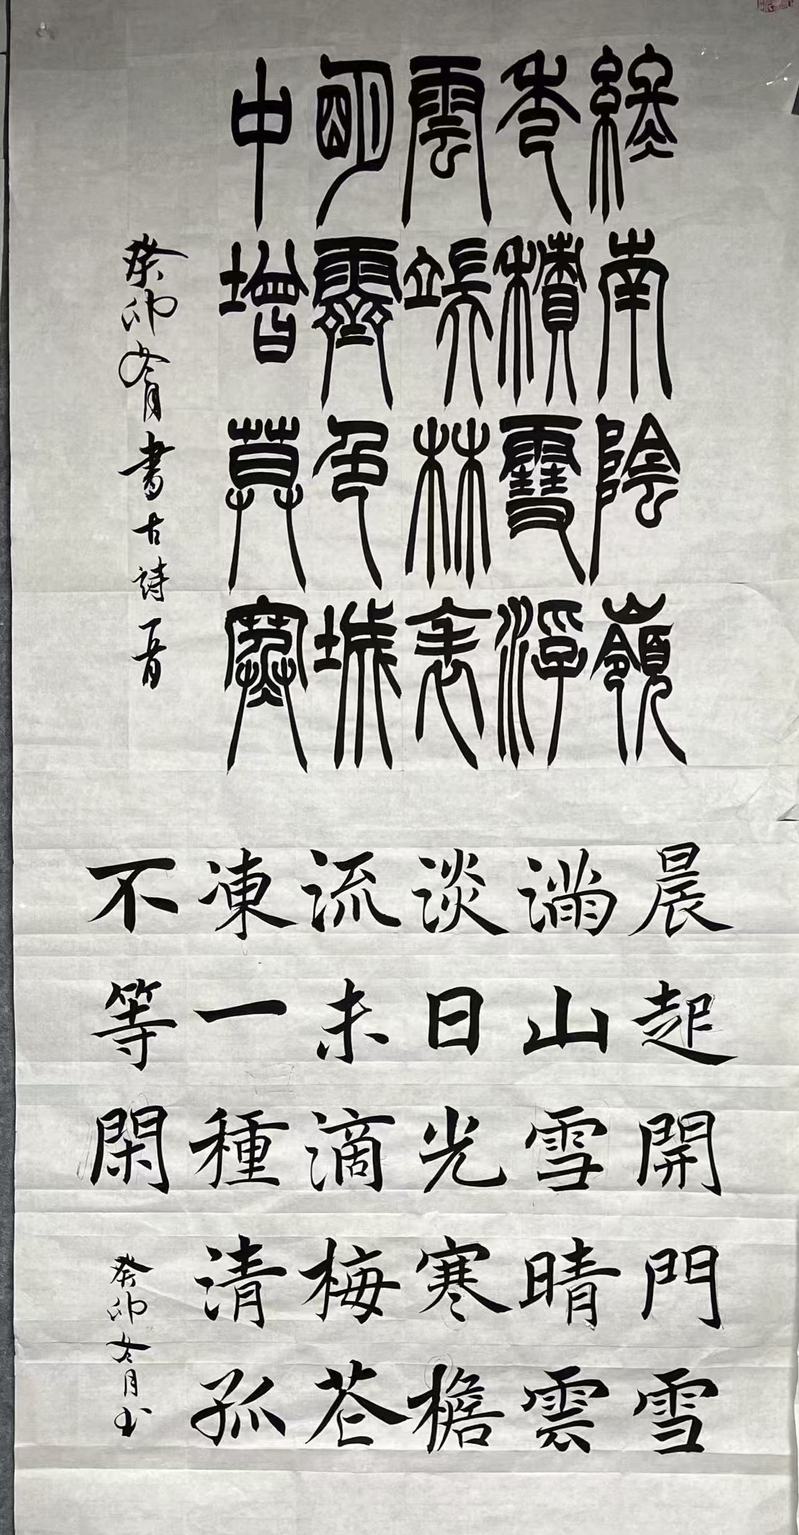 終南陰嶺
秀積雪浮
雲端林表
明霽色城
中增莫寒
癸卯冬月書古詩一首
晨起開門雪
滿山雪晴雲
淡日光寒檐
流未滴梅花
凍一種清孤
不等閑
癸卯冬月书